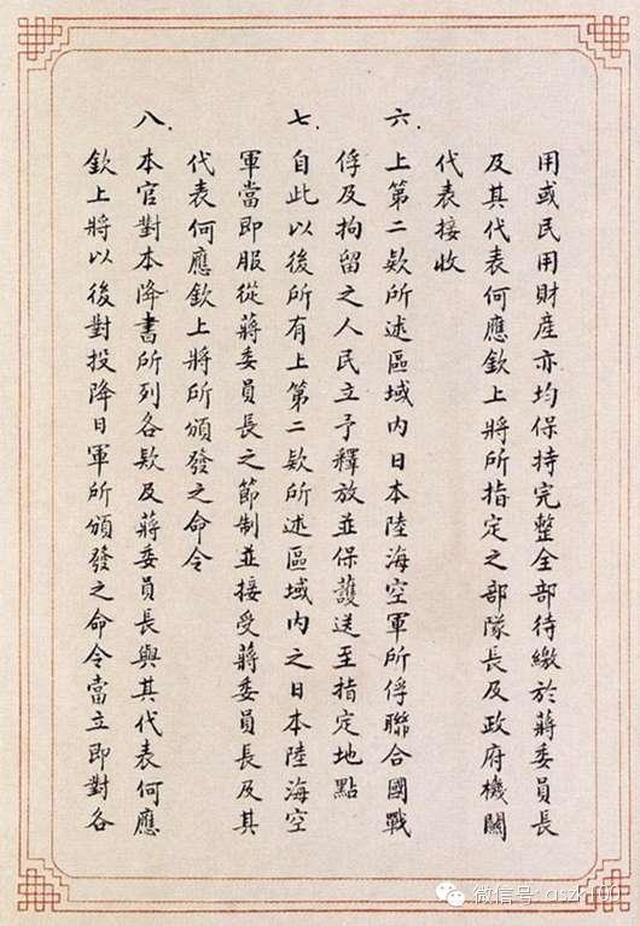 用或民用財產亦均保持完整全部待繳於蔣委員長
及其代表何應欽上將所指定之部隊長及政府機關
代表接收
六.上第二款所述區域內日本陸海空軍所俘聯合國戰
俘及拘留之人民立予釋放並保護送至指定地點
七.自此以後所有上第二款所述區域內之日本陸海空
軍當即服從蔣委員長之節制並接受蔣委員長及其
代表何應欽上將所頒發之命令
八.本官對本降書所列各款及蔣委員長與其代表何應
欽上將以後對投降日軍所頒發之命令當立即對各
微信号: